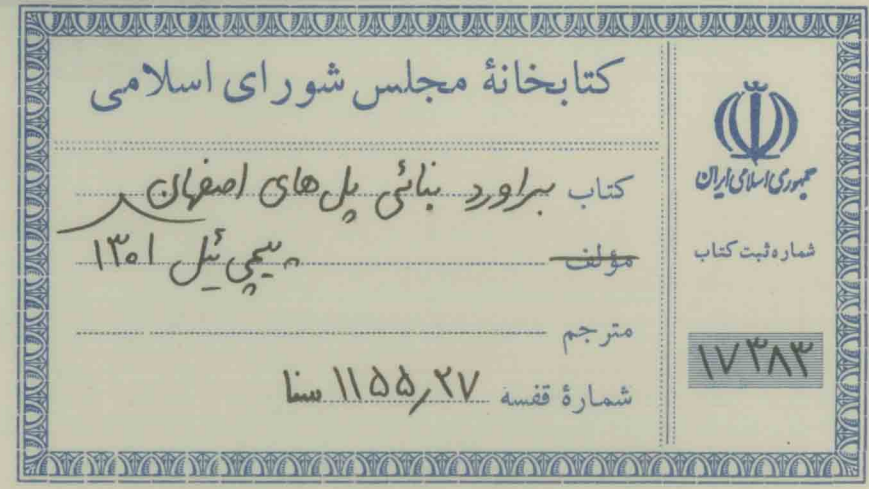 کتابخانهٔ مجلس شورای اسلامی
جمهوری اسلامی ایران
کتاب براورد بنائی پل‌های اصفهان
مؤلف پیچی ئیل ۱۳۰۱
شماره ثبت کتاب
مترجم
۱۷۳۸۳
شمارهٔ قفسه ۱۱۵۵٫۲۷ سنا